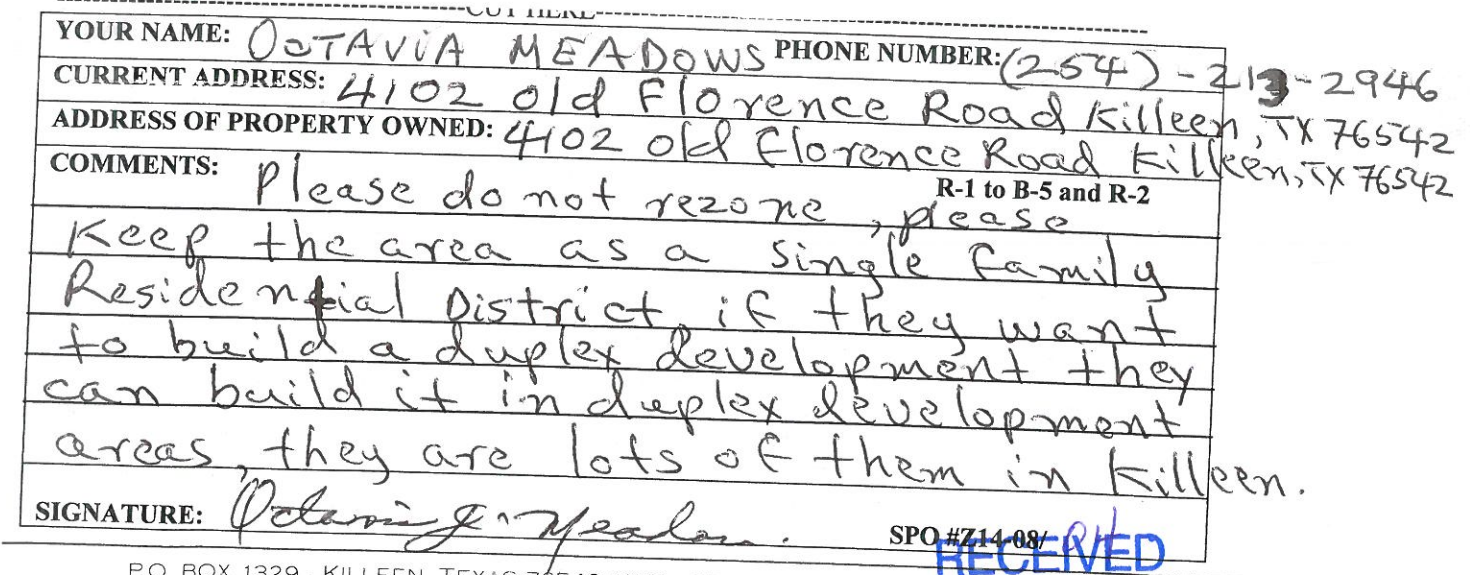 CUT HERE
YOUR NAME: OCTAVIA MEADOWS PHONE NUMBER: (254)-213-2946
CURRENT ADDRESS: 4102 old Florence Road Killeen, TX 76542
ADDRESS OF PROPERTY OWNED: 4102 old Florence Road Killeen, TX 76542
COMMENTS: Please do not rezone, please R-1 to B-5 and R-2
Keep the area as a single family
Residential District if they want
to build a duplex development they
can build it in duplex development
areas, they are lots of them in Killeen.
SIGNATURE: Octavia J. Meadows SPO #Z14-08/
RECEIVED
P.O. BOX 1329 KILLEEN, TEXAS